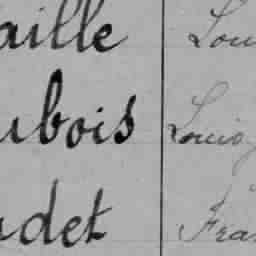 aille Lou
ubois Louis
udet Fra